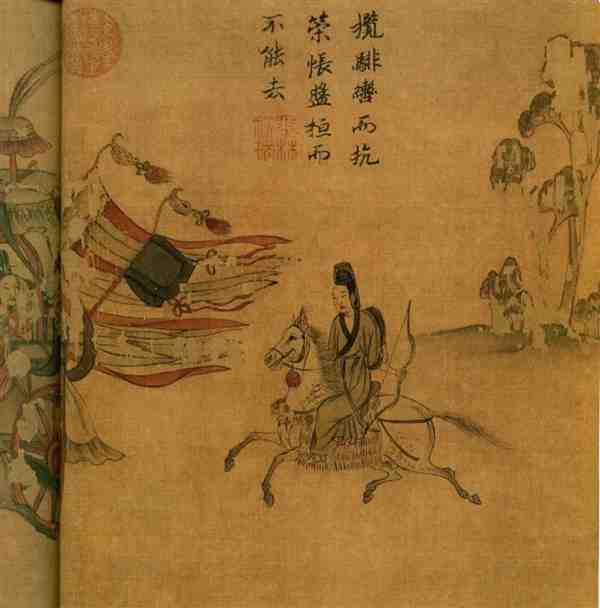 攬騑轡而抗
策悵盤桓而
不能去